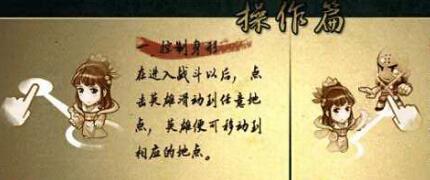 操作篇
一 控制身形
在进入战斗以后，点
击英雄滑动到任意地
点，英雄便可移动到
相应的地点。